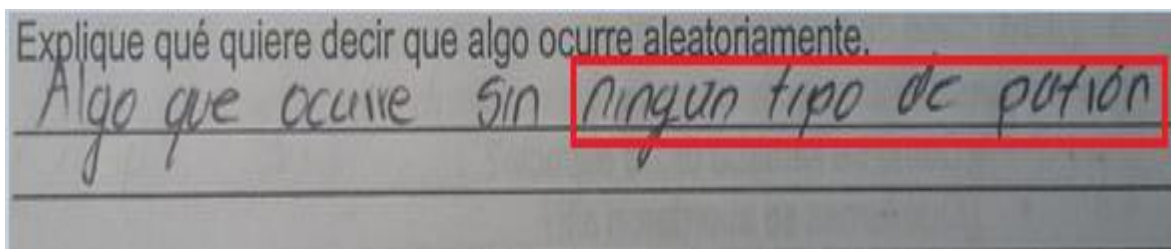 Explique qué quiere decir que algo ocurre aleatoriamente.
Algo que ocurre sin ningun tipo de patrón